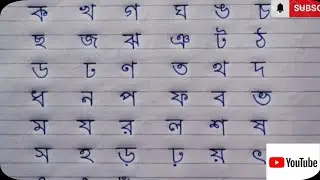 ক খ গ ঘ ঙ চ
ছ জ ঝ ঞ ট ঠ
ড ঢ ণ ত থ দ
ধ ন প ফ ব ভ
ম য র ল শ ষ
স হ ড় ঢ় য় ৎ
SUBSC
YouTube